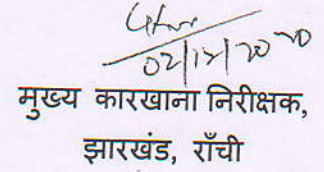 02/12/2020
मुख्य कारखाना निरीक्षक,
झारखंड, राँची